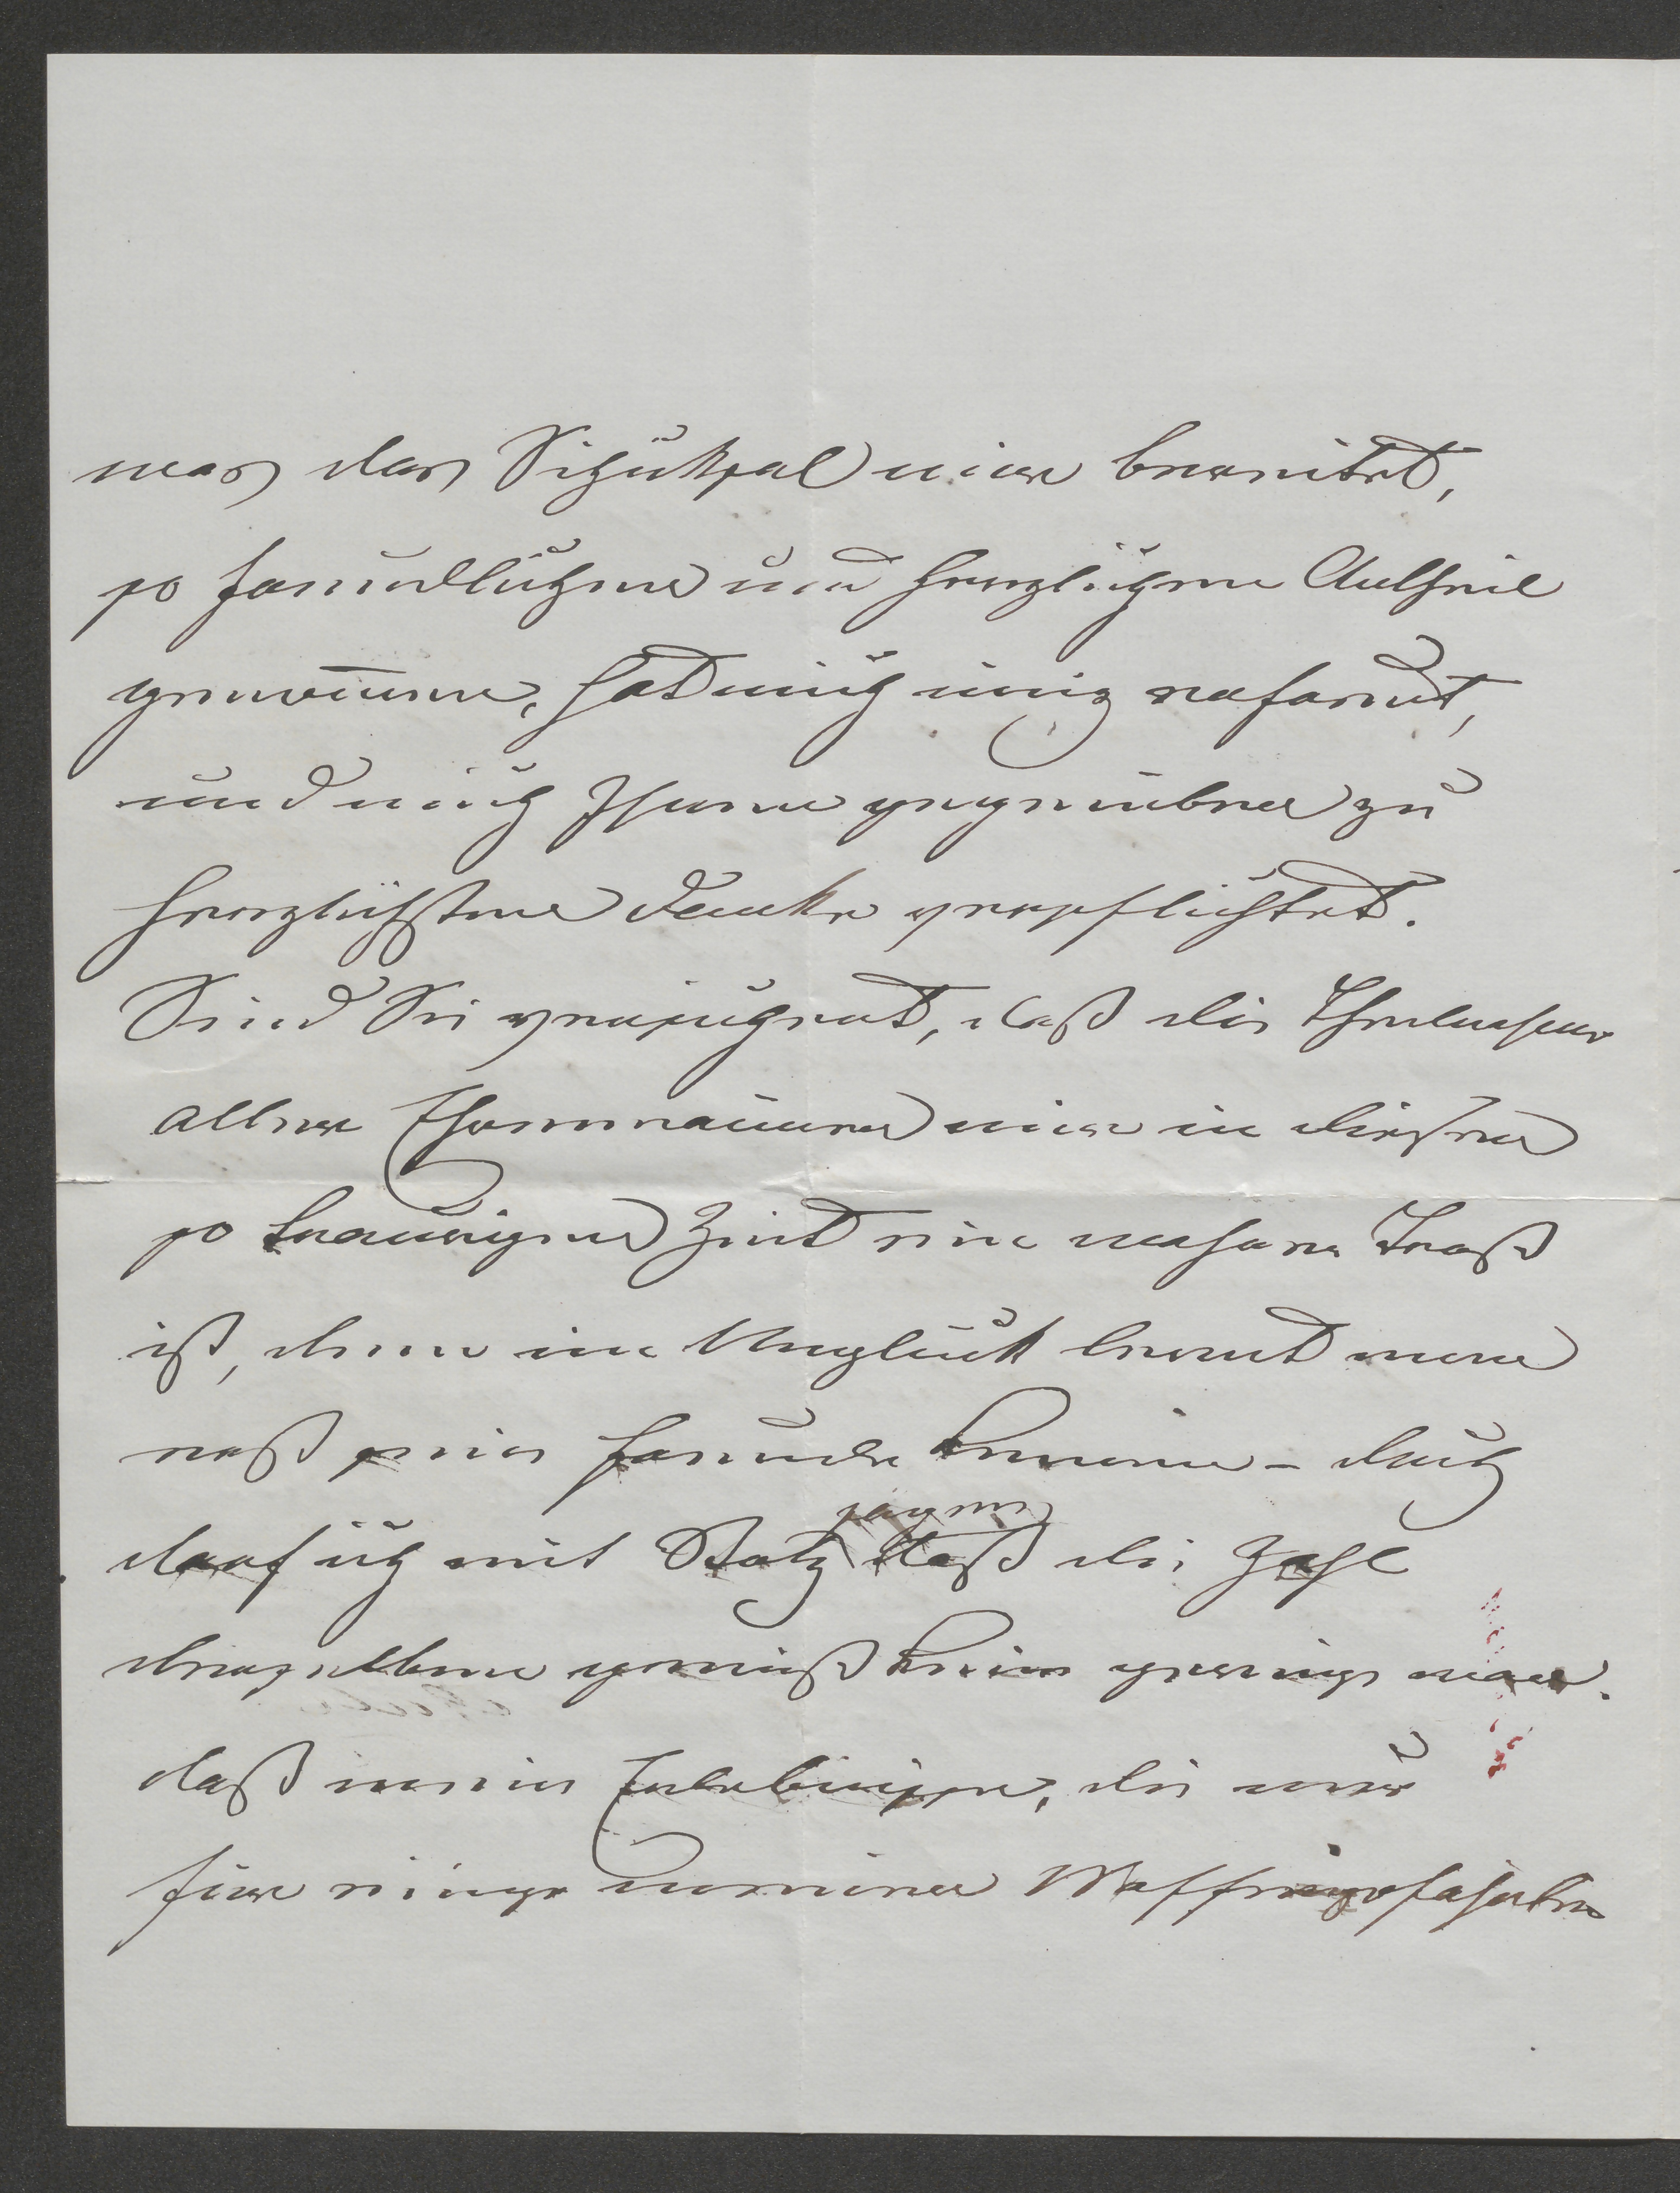 was das Schicksal mir bereitet,
so freundlichen und herzlichen Antheil
genom̄en, hat mich innig erfreut,
und mich Ihnen gegenüber zu
herzlichsten Danke verpflichtet.
Seind Sie versichert, daß die Theilnahme
aller Ehrenmänner mir in dieser
so traurigen Zeit ein wahrer Trost
ist, denn im Unglück lernt man
erst seine Freunde kennen – doch
darf ich mit Stolz sagen daß die Zahl
derselben gewiß keine geringe war.
daß meine Erlebnisse, die nur
für einige meiner Waffengefährten